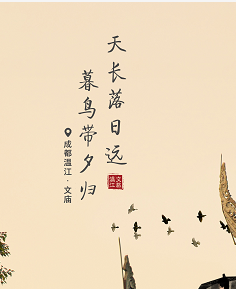 天长落日远
暮鸟带夕归
成都温江·文庙